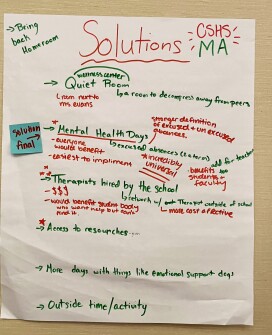 → Bring
back
Homeroom
Solutions
CSHS
MA
wellness center
→ Quiet Room
↳ room next to
ms. evans
↳ a room to decompress away from peers
Solution
final
stronger definition
of excused + un excused
absences
* → Mental Health Days
↳ excused absences (2 a term)
add for teachers
too
- everyone
would benefit
- easiest to impliment
* incredibly
universal
benefits
students +
faculty
* → Therapists hired by the school
- $$$
- would benefit student body
who want help but can't
find it
↳ work w/ out Therapist outside of school
↳ more cost affective
* → Access to resources...
→ More days with things like emotional support dogs
→ Outside time/activity